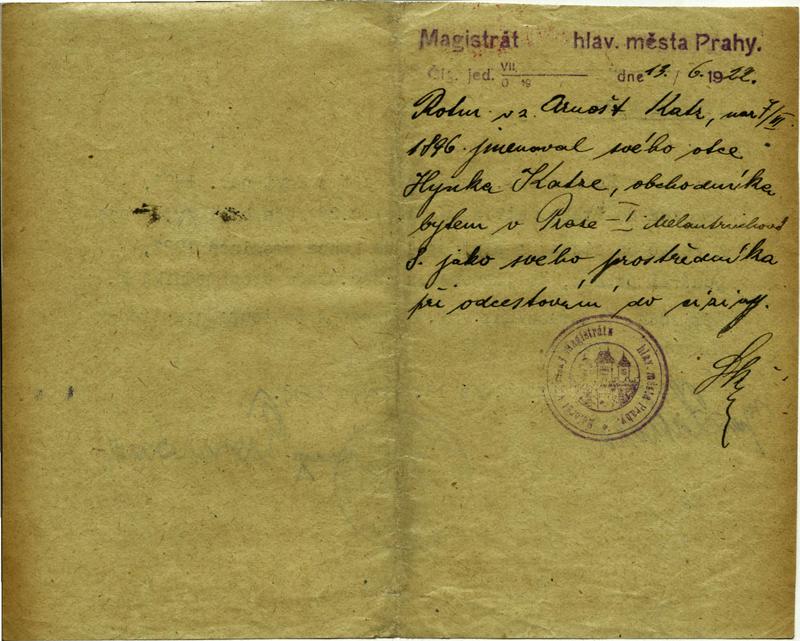 Magistrát hlav. města Prahy.
Čís. jed. VII. 19 dne 13/6. 1922.
Rotm. v z. Arnošt Katz, nar. 7/III
1896 jmenoval svého otce
Hynka Katze, obchodníka
bytem v Praze - I Melantrichova
8. jako svého prostředníka
při odcestování do ciziny.
Magistrátu hlav. města Prahy.